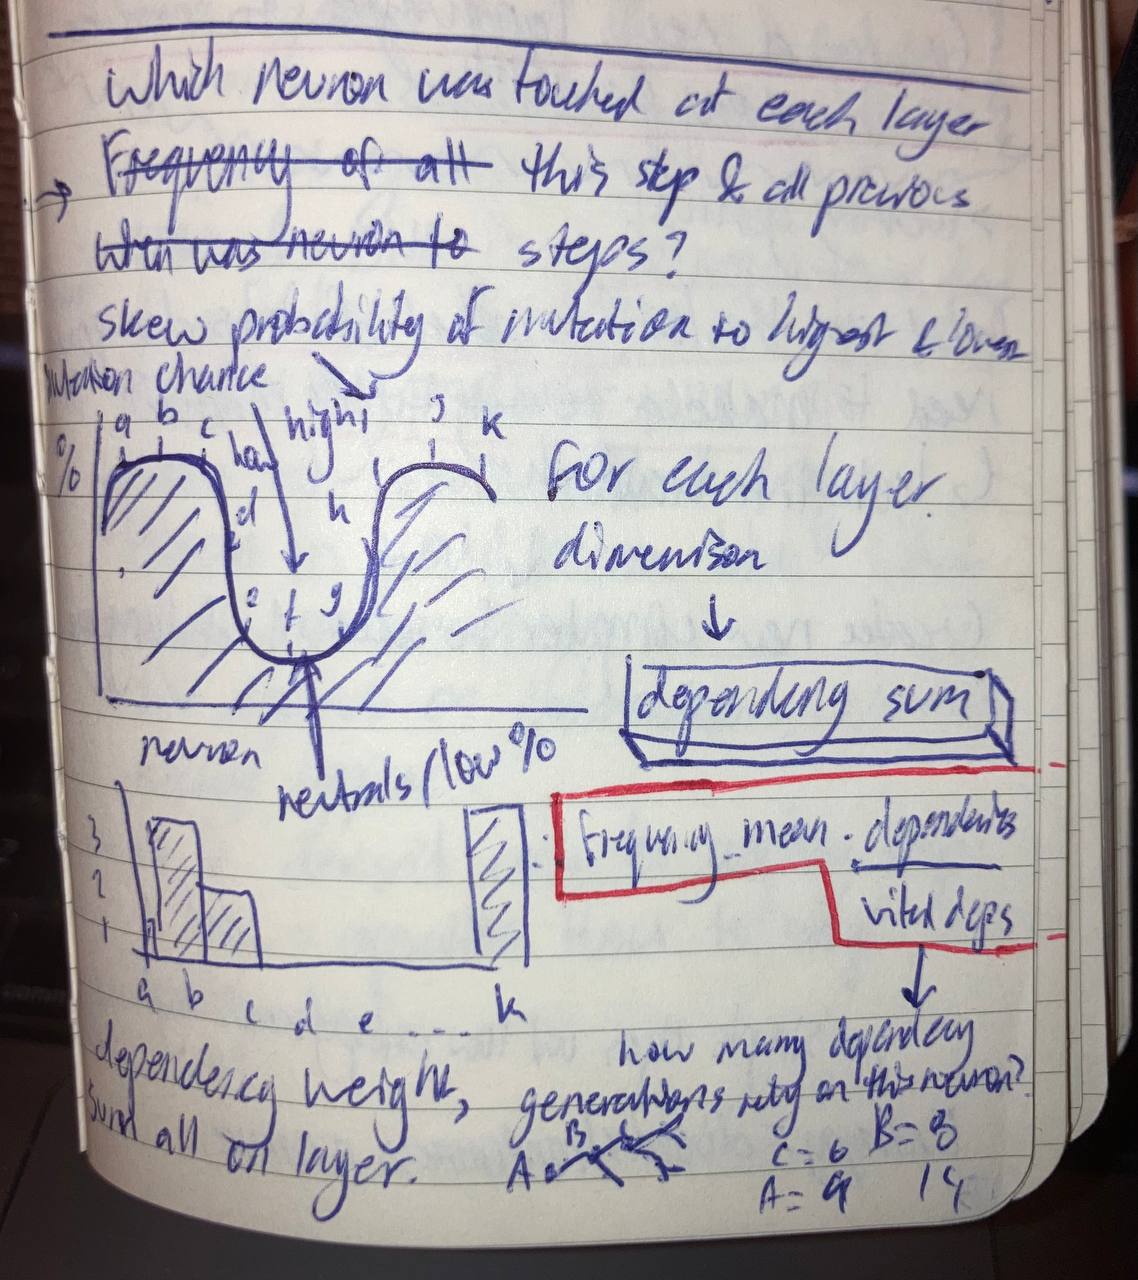 which neuron was touched at each layer
→ Frequency of all this step & all previous
when was neuron to steps?
skew probability of mutation to highest & lowest
mutation chance
high
a b c j k
%
d h
e f g
neuron
neutrals/low %
For each layer
dimenison
depending sum
3
2
1
a b c d e .... k
Frequency mean . dependencies
vited deps
how many dependency
generations rely on this neuron?
dependency weight,
sum all on layer.
A B C
C = 6 B = 8
A = 9 14